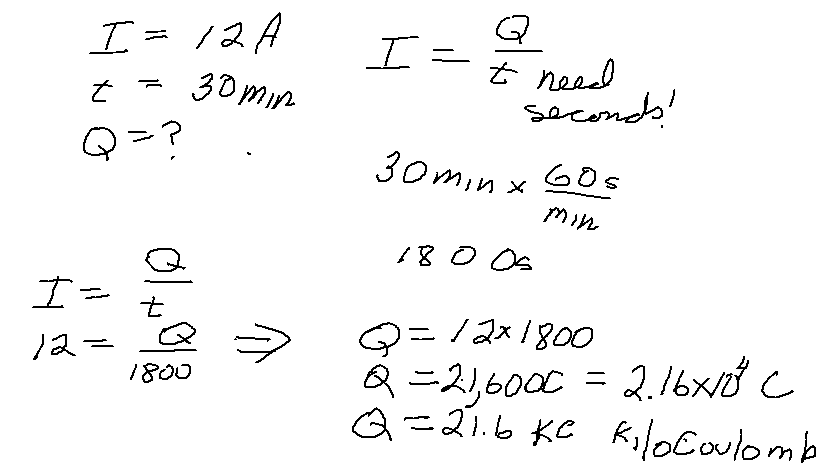 I = 12 A
t = 30 min
Q = ?
I = Q/t need seconds!
30 min x 60s/min
180 0s
I = Q/t
12 = Q/1800 ⇒
Q = 12 x 1800
Q = 21,600C = 2.16 x 10⁴ C
Q = 21.6 KC KiloCoulomb